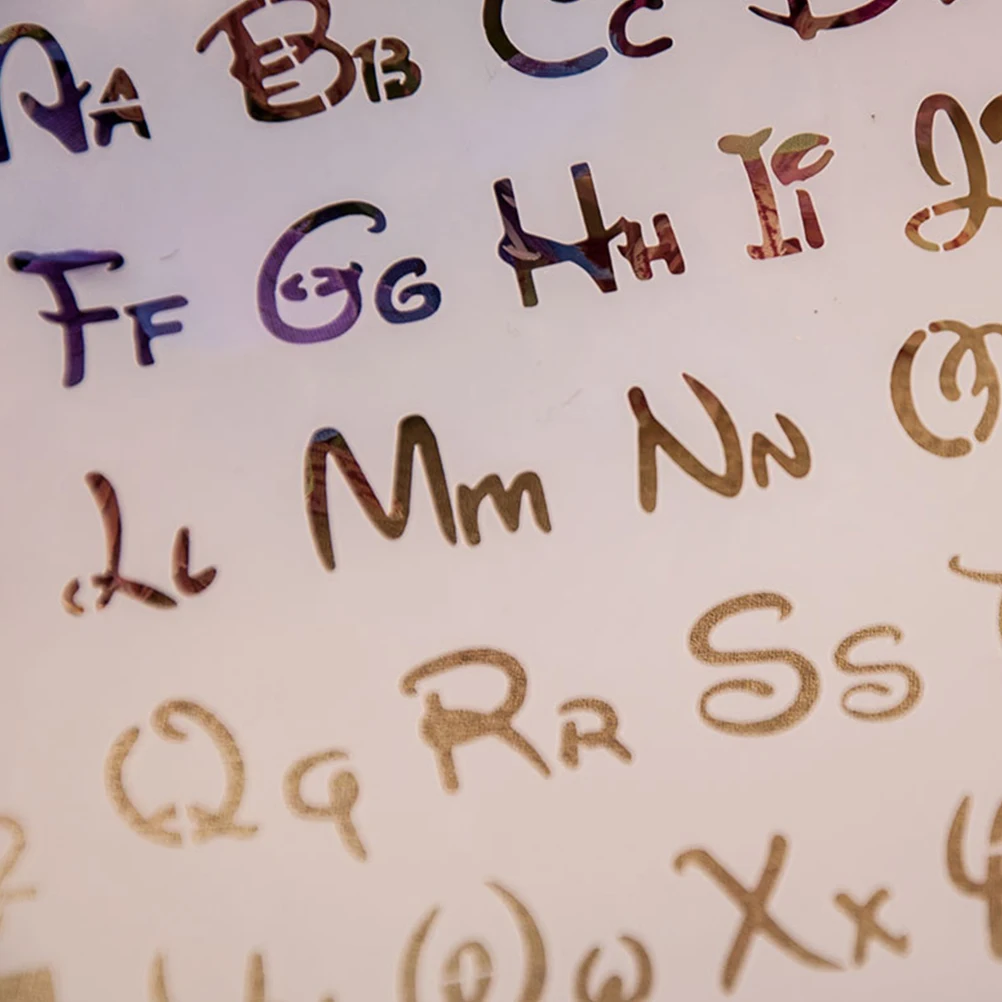 Aa Bb Cc
Ff Gg Hh Ii J
Ll Mm Nn O
Qq Rr Ss
Ww Xx